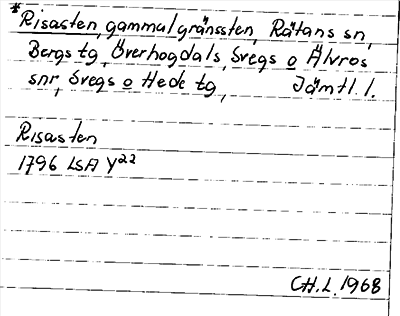 *Risasten, gammal gränssten, Rätans sn,
Bergs tg, Överhogdals, Svegs o Älvros
snr, Svegs o Hede tg, Jämtl. l.
Risasten
1796 LSA Y22
CH.L. 1968